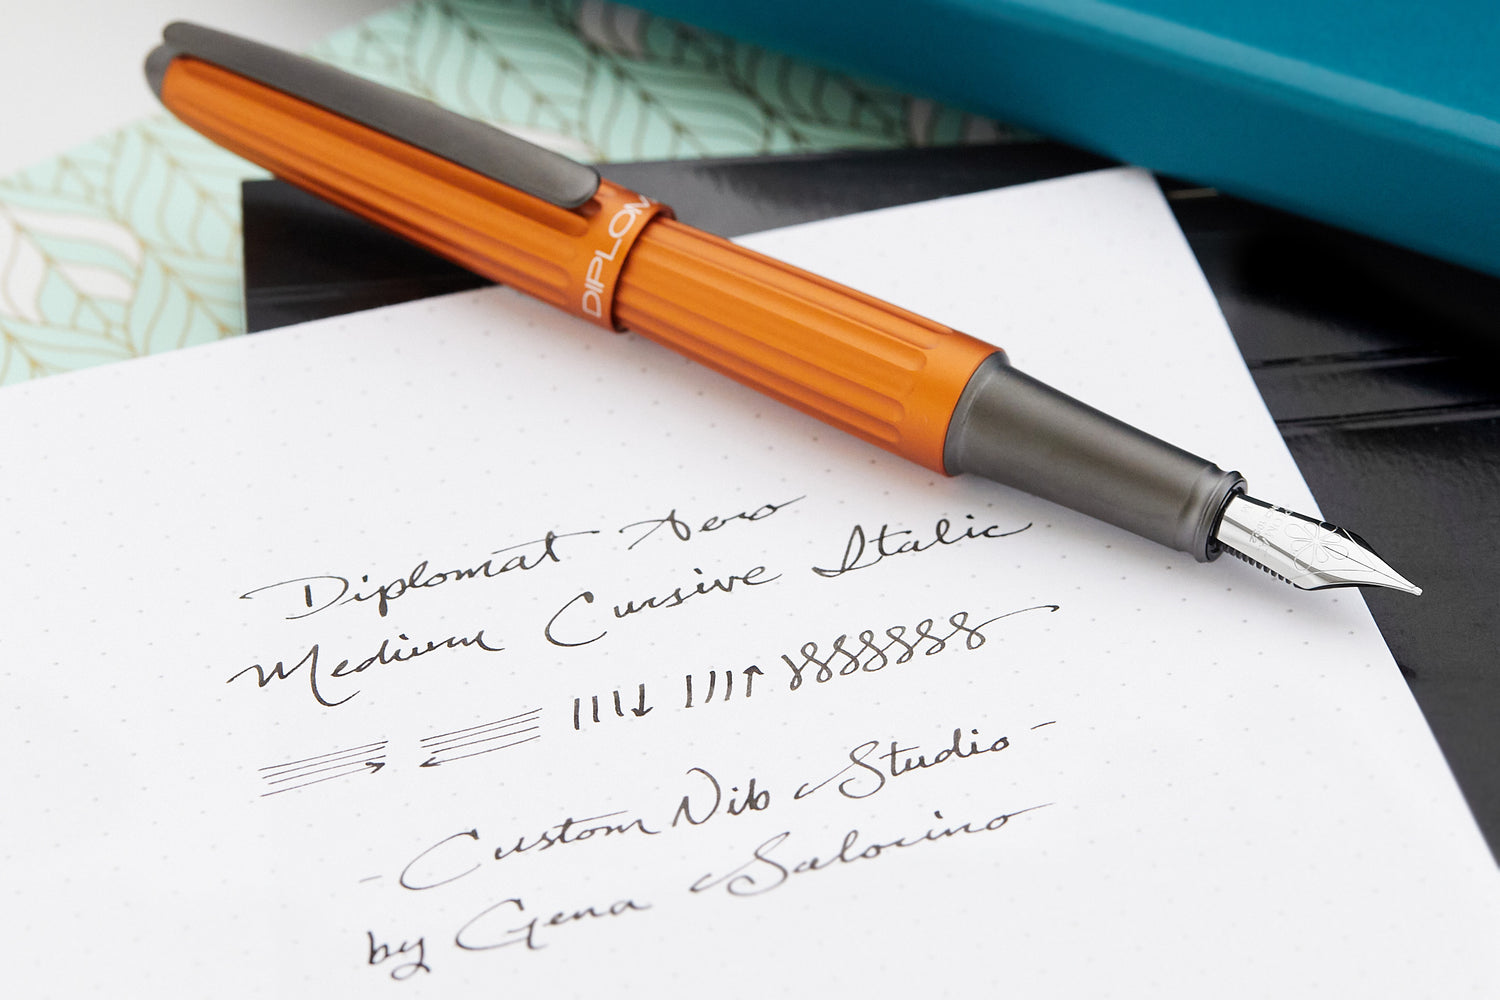 DIPLOM
Diplomat Aero
Medium Cursive Italic
- Custom Nib Studio -
by Gena Salorino